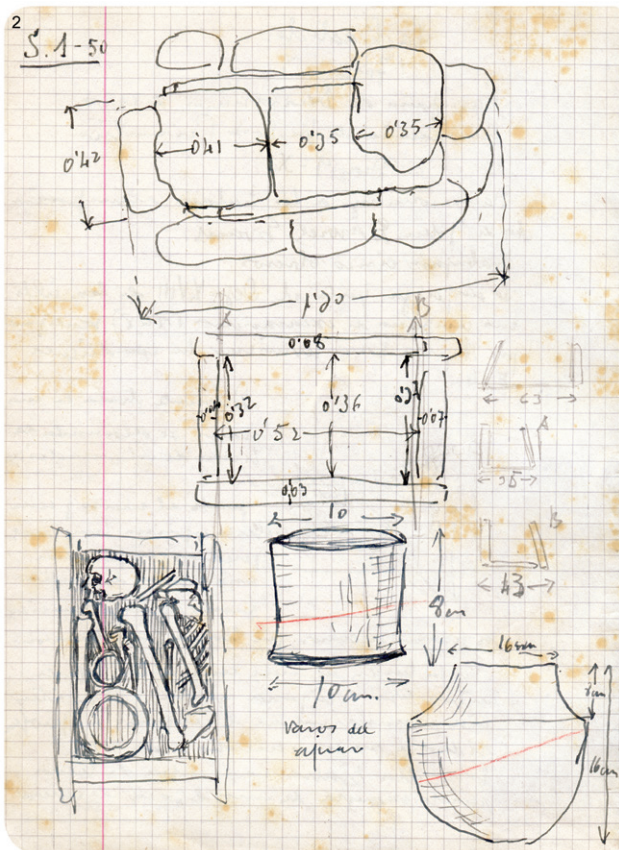 2
S. 1-50
0'42
0'41
0'35
0'35
1'20
A
B
0'08
0'32
0'36
0'52
0'07
0'03
63
A
B
43
10
8 cm
10 cm.
vasos del
ajuar
16 cm
16 cm